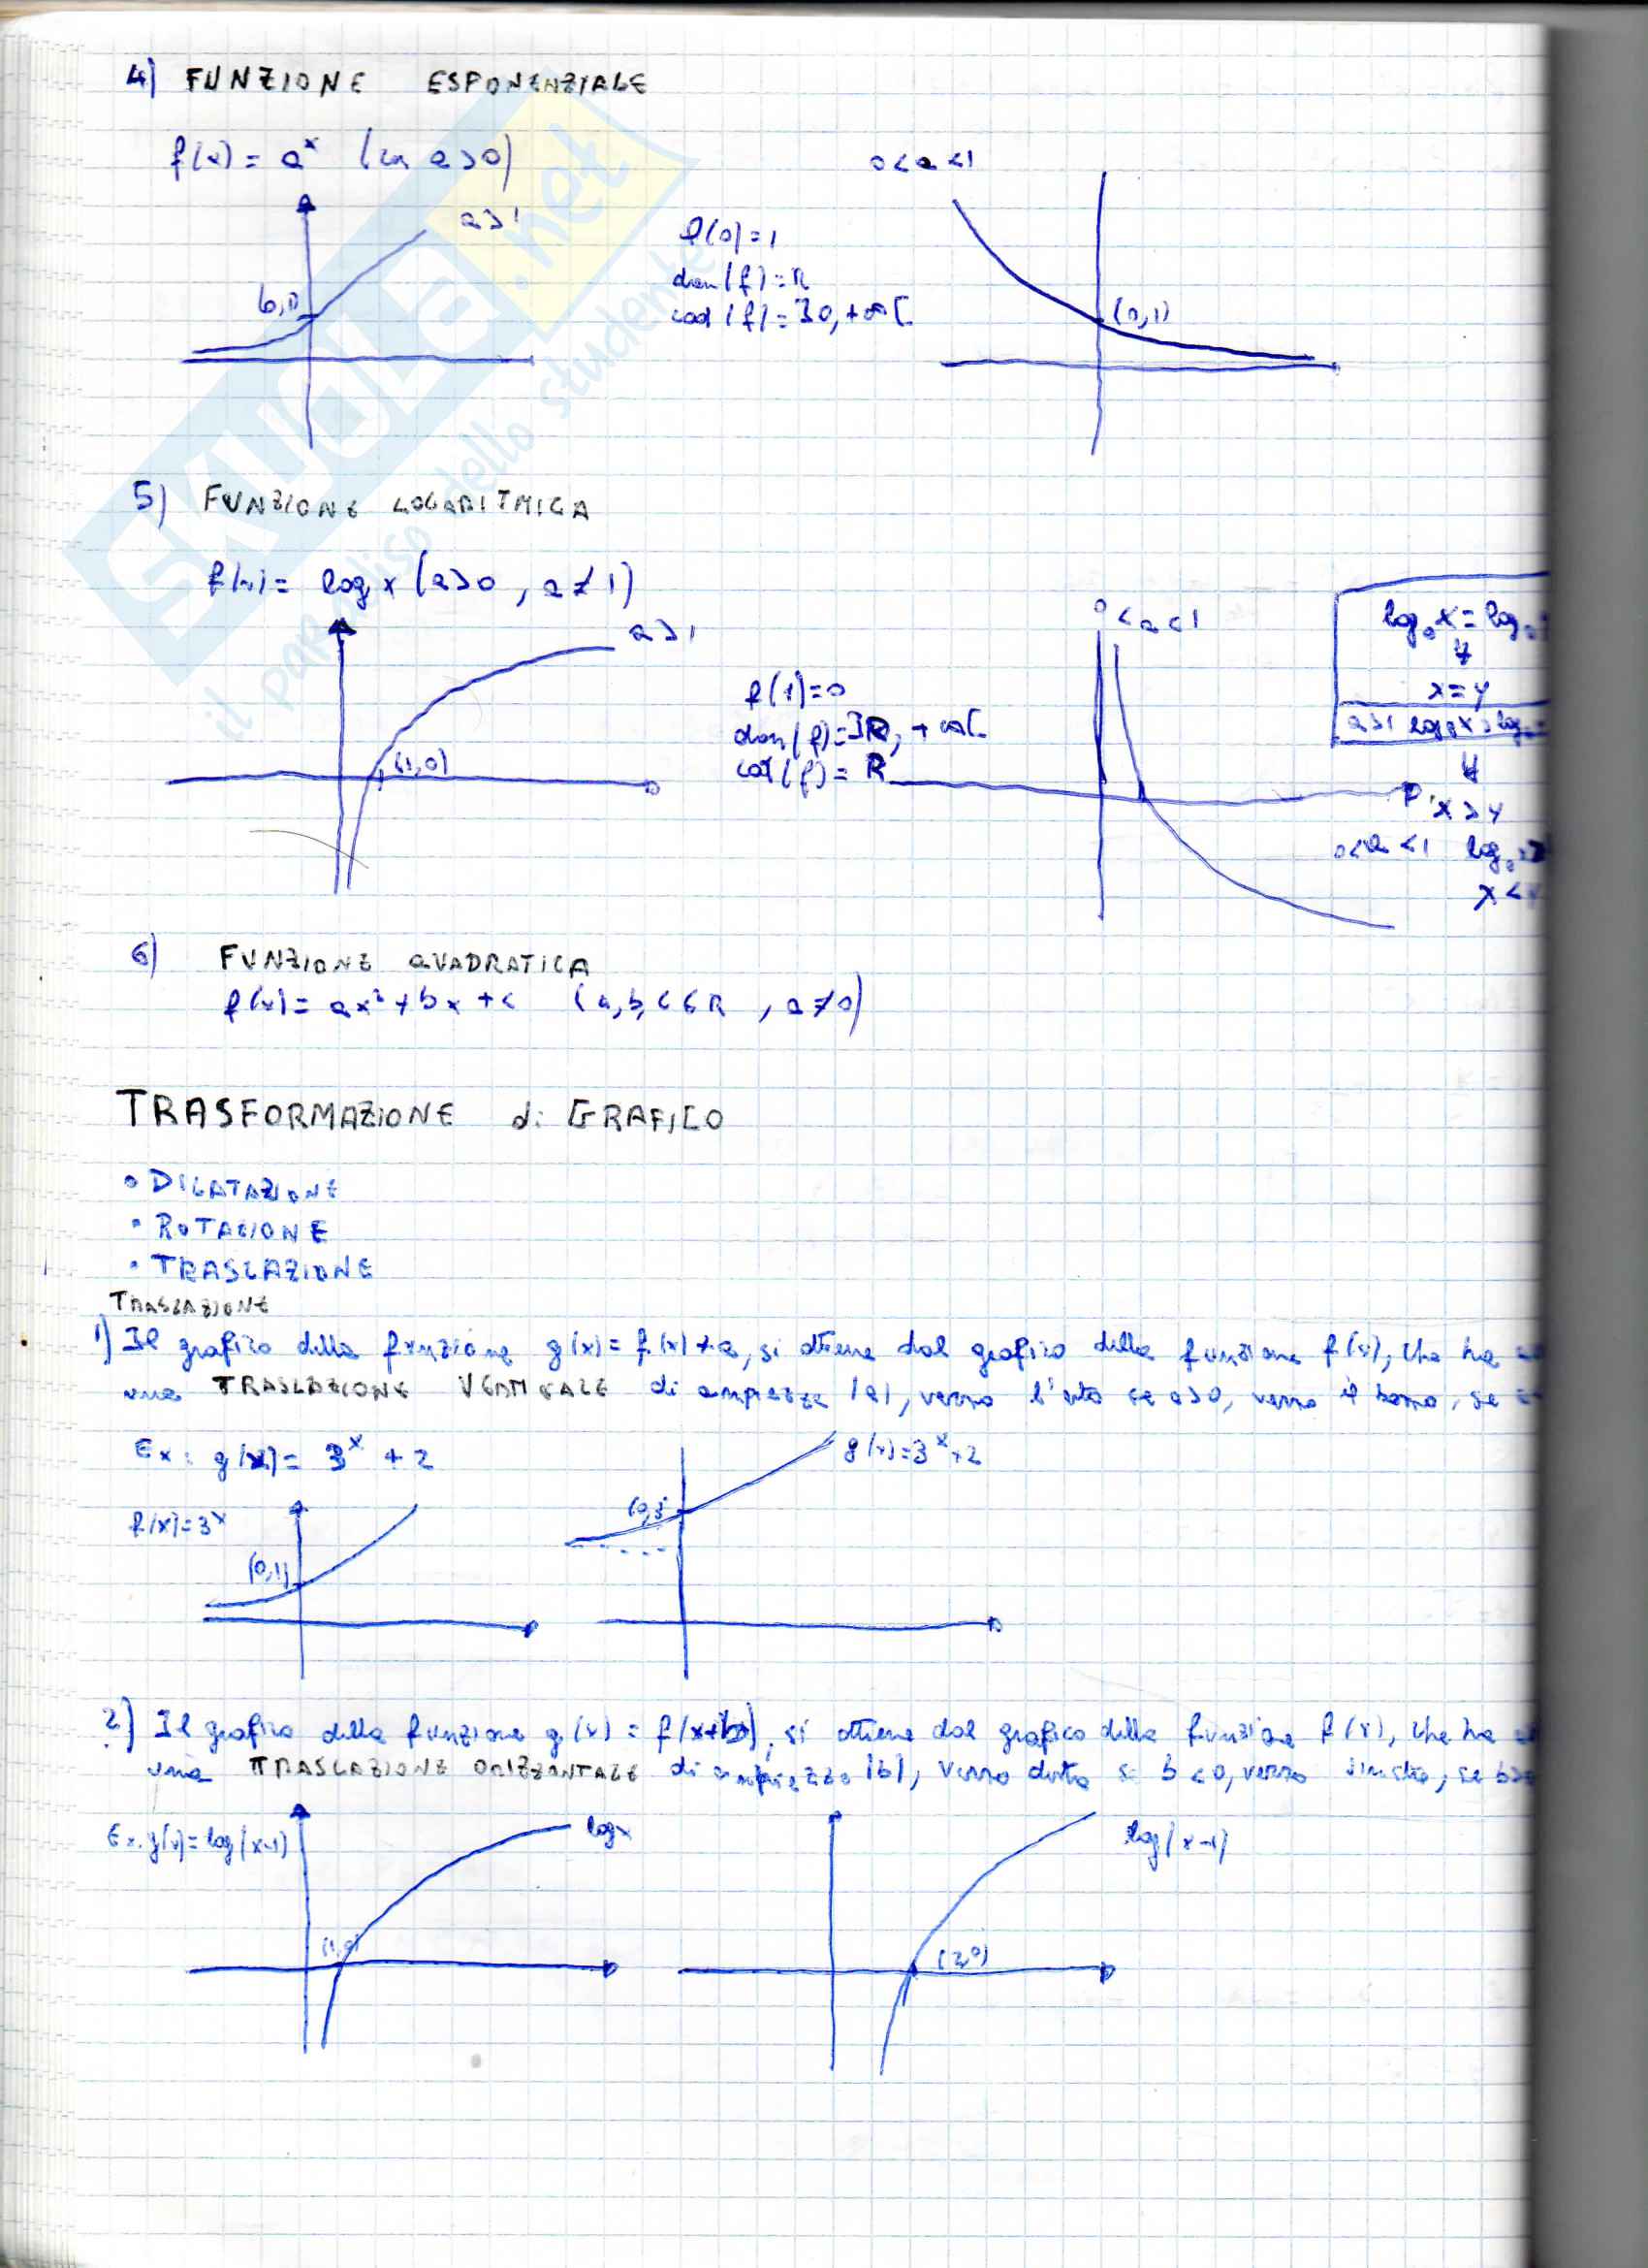 4) FUNZIONE ESPONENZIALE
f(x) = a^x (con a>0)
a>1
(0,1)
f(0)=1
dom(f)=R
cod(f)=]0,+∞[
0<a<1
(0,1)
5) FUNZIONE LOGARITMICA
f(x) = log x (a>0, a≠1)
a>1
(1,0)
f(1)=0
dom(f)=]R, +∞[
cod(f) = R
0<a<1
log_a x = log_a
x=y
a>1 log_a x > log_a
x>y
0<a<1 log_a x>
x<y
6) FUNZIONE QUADRATICA
f(x) = ax²+bx+c (a,b,c∈R, a≠0)
TRASFORMAZIONE di GRAFICO
• DILATAZIONE
• ROTAZIONE
• TRASLAZIONE
TRASLAZIONE
1) Il grafico della funzione g(x) = f(x)+a, si ottiene dal grafico della funzione f(x), che ha
una TRASLAZIONE VERTICALE di ampiezza |a|, verso l'alto se a>0, verso il basso, se
Ex: g(x) = 3^x + 2
f(x)=3^x
(0,1)
(0,3
g(x)=3^x+2
2) Il grafico della funzione g(x) = f(x+b), si ottiene dal grafico della funzione f(x), che ha
una TRASLAZIONE ORIZZONTALE di ampiezza |b|, verso destra se b<0, verso sinistra, se b>0
Ex. g(x)=log(x-1)
log x
(1,0)
log(x-1)
(2,0)
SKUOLA.net
il paradiso dello studente